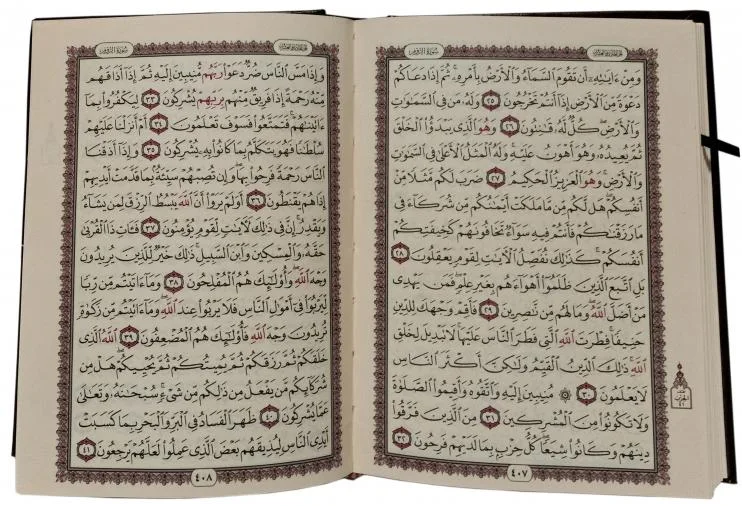 سُورَةُ الرُّومِ
وَمِنْ ءَايَٰتِهِۦٓ أَن تَقُومَ ٱلسَّمَآءُ وَٱلْأَرْضُ بِأَمْرِهِۦ ۚ ثُمَّ إِذَا دَعَاكُمْ
دَعْوَةً مِّنَ ٱلْأَرْضِ إِذَآ أَنتُمْ تَخْرُجُونَ ٢٥ وَلَهُۥ مَن فِى ٱلسَّمَٰوَٰتِ
وَٱلْأَرْضِ ۖ كُلٌّ لَّهُۥ قَٰنِتُونَ ٢٦ وَهُوَ ٱلَّذِى يَبْدَؤُا۟ ٱلْخَلْقَ
ثُمَّ يُعِيدُهُۥ وَهُوَ أَهْوَنُ عَلَيْهِ ۚ وَلَهُ ٱلْمَثَلُ ٱلْأَعْلَىٰ فِى ٱلسَّمَٰوَٰتِ
وَٱلْأَرْضِ ۚ وَهُوَ ٱلْعَزِيزُ ٱلْحَكِيمُ ٢٧ ضَرَبَ لَكُم مَّثَلًا مِّنْ
أَنفُسِكُمْ ۖ هَل لَّكُم مِّن مَّا مَلَكَتْ أَيْمَٰنُكُم مِّن شُرَكَآءَ فِى
مَا رَزَقْنَٰكُمْ فَأَنتُمْ فِيهِ سَوَآءٌ تَخَافُونَهُمْ كَخِيفَتِكُمْ
أَنفُسَكُمْ ۚ كَذَٰلِكَ نُفَصِّلُ ٱلْءَايَٰتِ لِقَوْمٍ يَعْقِلُونَ ٢٨
بَلِ ٱتَّبَعَ ٱلَّذِينَ ظَلَمُوٓا۟ أَهْوَآءَهُم بِغَيْرِ عِلْمٍ ۖ فَمَن يَهْدِى
مَنْ أَضَلَّ ٱللَّهُ ۖ وَمَا لَهُم مِّن نَّٰصِرِينَ ٢٩ فَأَقِمْ وَجْهَكَ لِلدِّينِ
حَنِيفًا ۚ فِطْرَتَ ٱللَّهِ ٱلَّتِى فَطَرَ ٱلنَّاسَ عَلَيْهَا ۚ لَا تَبْدِيلَ لِخَلْقِ
ٱللَّهِ ۚ ذَٰلِكَ ٱلدِّينُ ٱلْقَيِّمُ وَلَٰكِنَّ أَكْثَرَ ٱلنَّاسِ
لَا يَعْلَمُونَ ٣٠ ۞ مُنِيبِينَ إِلَيْهِ وَٱتَّقُوهُ وَأَقِيمُوا۟ ٱلصَّلَوٰةَ
وَلَا تَكُونُوا۟ مِنَ ٱلْمُشْرِكِينَ ٣١ مِنَ ٱلَّذِينَ فَرَّقُوا۟
دِينَهُمْ وَكَانُوا۟ شِيَعًا ۖ كُلُّ حِزْبٍۭ بِمَا لَدَيْهِمْ فَرِحُونَ ٣٢
٤٠٧
سُورَةُ الرُّومِ
وَإِذَا مَسَّ ٱلنَّاسَ ضُرٌّ دَعَوْا۟ رَبَّهُم مُّنِيبِينَ إِلَيْهِ ثُمَّ إِذَآ أَذَاقَهُم
مِّنْهُ رَحْمَةً إِذَا فَرِيقٌ مِّنْهُم بِرَبِّهِمْ يُشْرِكُونَ ٣٣ لِيَكْفُرُوا۟ بِمَآ
ءَاتَيْنَٰهُمْ ۚ فَتَمَتَّعُوا۟ فَسَوْفَ تَعْلَمُونَ ٣٤ أَمْ أَنزَلْنَا عَلَيْهِمْ
سُلْطَٰنًا فَهُوَ يَتَكَلَّمُ بِمَا كَانُوا۟ بِهِۦ يُشْرِكُونَ ٣٥ وَإِذَآ أَذَقْنَا
ٱلنَّاسَ رَحْمَةً فَرِحُوا۟ بِهَا ۖ وَإِن تُصِبْهُمْ سَيِّئَةٌۢ بِمَا قَدَّمَتْ أَيْدِيهِمْ
إِذَا هُمْ يَقْنَطُونَ ٣٦ أَوَلَمْ يَرَوْا۟ أَنَّ ٱللَّهَ يَبْسُطُ ٱلرِّزْقَ لِمَن يَشَآءُ
وَيَقْدِرُ ۚ إِنَّ فِى ذَٰلِكَ لَءَايَٰتٍ لِّقَوْمٍ يُؤْمِنُونَ ٣٧ فَـَٔاتِ ذَا ٱلْقُرْبَىٰ
حَقَّهُۥ وَٱلْمِسْكِينَ وَٱبْنَ ٱلسَّبِيلِ ۚ ذَٰلِكَ خَيْرٌ لِّلَّذِينَ يُرِيدُونَ
وَجْهَ ٱللَّهِ ۖ وَأُو۟لَٰٓئِكَ هُمُ ٱلْمُفْلِحُونَ ٣٨ وَمَآ ءَاتَيْتُم مِّن رِّبًا
لِّيَرْبُوَا۟ فِىٓ أَمْوَٰلِ ٱلنَّاسِ فَلَا يَرْبُوا۟ عِندَ ٱللَّهِ ۖ وَمَآ ءَاتَيْتُم مِّن زَكَوٰةٍ
تُرِيدُونَ وَجْهَ ٱللَّهِ فَأُو۟لَٰٓئِكَ هُمُ ٱلْمُضْعِفُونَ ٣٩ ٱللَّهُ ٱلَّذِى
خَلَقَكُمْ ثُمَّ رَزَقَكُمْ ثُمَّ يُمِيتُكُمْ ثُمَّ يُحْيِيكُمْ ۖ هَلْ مِن
شُرَكَآئِكُم مَّن يَفْعَلُ مِن ذَٰلِكُم مِّن شَىْءٍ ۚ سُبْحَٰنَهُۥ وَتَعَٰلَىٰ
عَمَّا يُشْرِكُونَ ٤٠ ظَهَرَ ٱلْفَسَادُ فِى ٱلْبَرِّ وَٱلْبَحْرِ بِمَا كَسَبَتْ
أَيْدِى ٱلنَّاسِ لِيُذِيقَهُم بَعْضَ ٱلَّذِى عَمِلُوا۟ لَعَلَّهُمْ يَرْجِعُونَ ٤١
٤٠٨